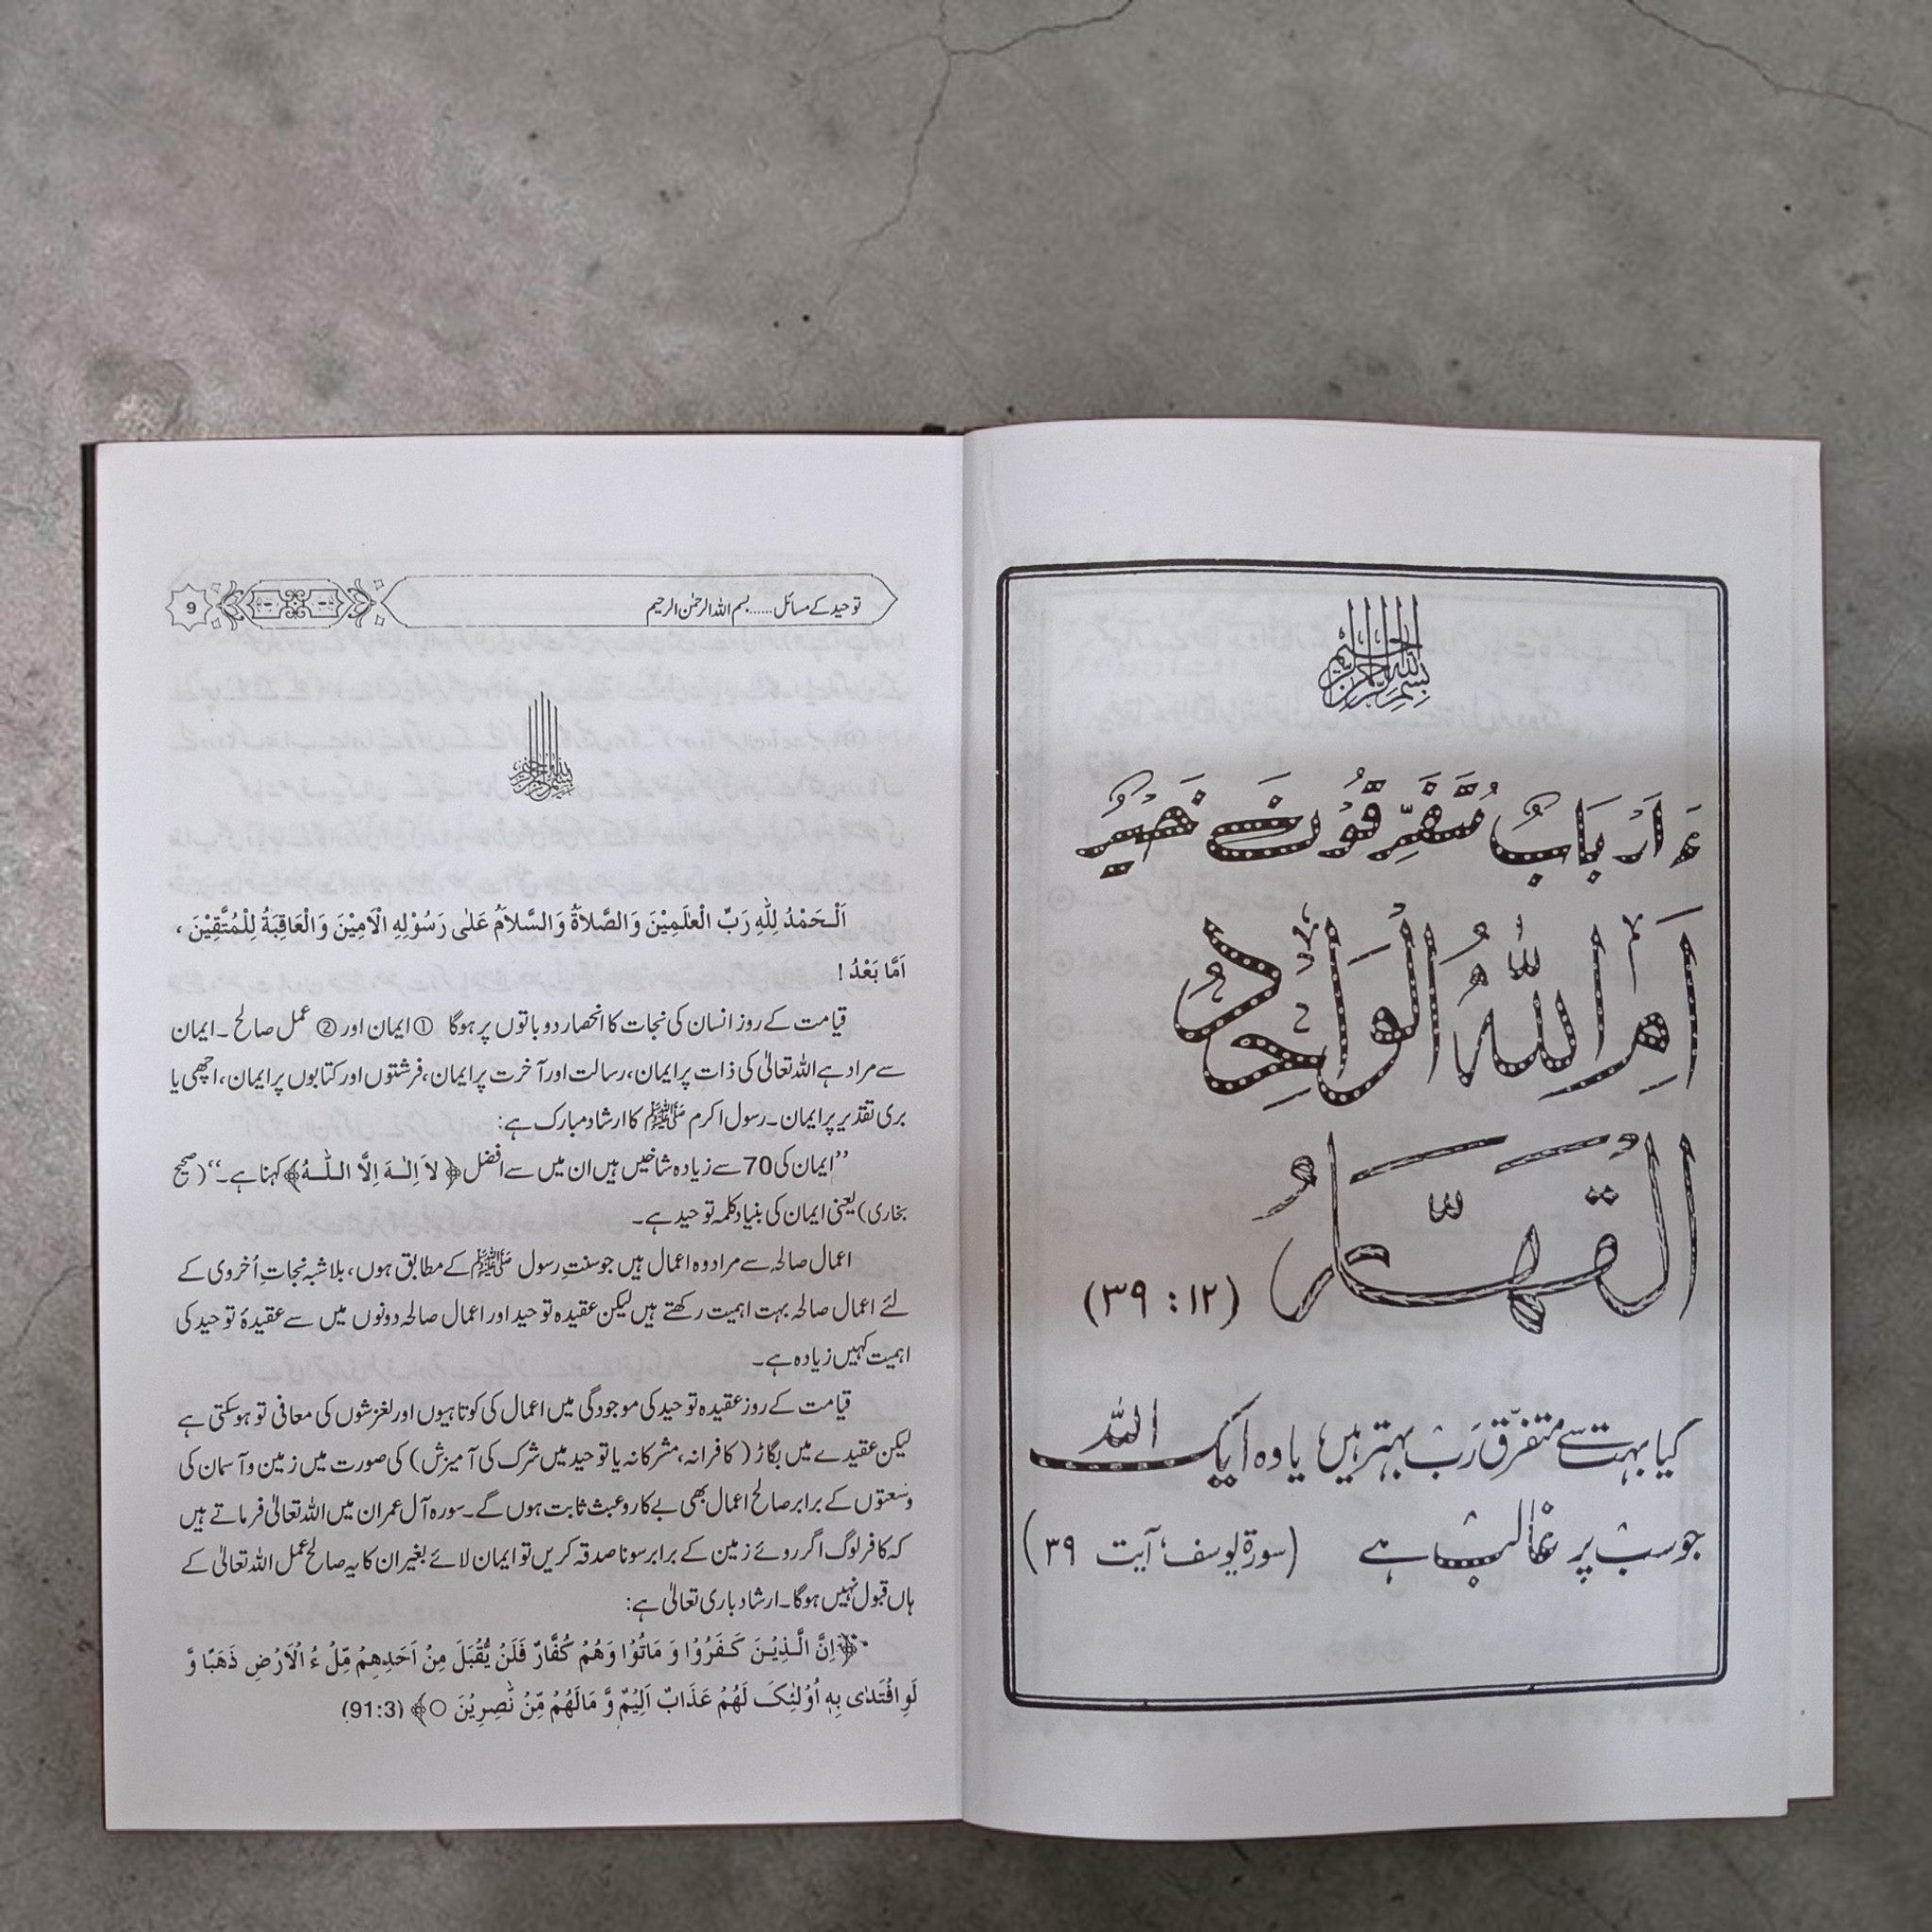 بسم الله الرحمن الرحيم
ءَاَرْبَابٌ مُّتَفَرِّقُوْنَ خَيْرٌ
اَمِ اللّٰهُ الْوَاحِدُ
الْقَهَّارُ (۱۲ : ۳۹)
کیا بہت سے متفرّق رَب بہتر ہیں یا وہ ایک اللہ
جو سب پر غالب ہے (سورۃ یوسف، آیت ۳۹)
توحید کے مسائل......بسم اللہ الرحمٰن الرحیم
9
بسم الله الرحمن الرحيم
اَلْـحَمْدُ لِلّٰهِ رَبِّ الْعٰلَمِيْنَ وَالصَّلاَةُ وَالسَّلاَمُ عَلٰى رَسُوْلِهِ الْاَمِيْنَ وَالْعَاقِبَةُ لِلْمُتَّقِيْنَ ،
اَمَّا بَعْدُ !
قیامت کے روز انسان کی نجات کا انحصار دو باتوں پر ہوگا ① ایمان اور ② عمل صالح ۔ ایمان
سے مراد ہے اللہ تعالیٰ کی ذات پر ایمان، رسالت اور آخرت پر ایمان، فرشتوں اور کتابوں پر ایمان، اچھی یا
بری تقدیر پر ایمان۔ رسول اکرم ﷺ کا ارشاد مبارک ہے:
’’ایمان کی 70 سے زیادہ شاخیں ہیں ان میں سے افضل ﴿ لاَ اِلٰـهَ اِلَّا الـلّٰـهُ﴾ کہنا ہے۔‘‘ (صحیح
بخاری) یعنی ایمان کی بنیاد کلمہ توحید ہے۔
اعمال صالحہ سے مراد وہ اعمال ہیں جو سنتِ رسول ﷺ کے مطابق ہوں، بلاشبہ نجاتِ اُخروی کے
لئے اعمال صالحہ بہت اہمیت رکھتے ہیں لیکن عقیدہ توحید اور اعمال صالحہ دونوں میں سے عقیدۂ توحید کی
اہمیت کہیں زیادہ ہے۔
قیامت کے روز عقیدہ توحید کی موجودگی میں اعمال کی کوتاہیوں اور لغزشوں کی معافی تو ہو سکتی ہے
لیکن عقیدے میں بگاڑ ( کافرانہ، مشرکانہ یا توحید میں شرک کی آمیزش) کی صورت میں زمین و آسمان کی
وسعتوں کے برابر صالح اعمال بھی بے کار و عبث ثابت ہوں گے۔ سورہ آل عمران میں اللہ تعالیٰ فرماتے ہیں
کہ کافر لوگ اگر روئے زمین کے برابر سونا صدقہ کریں تو ایمان لائے بغیر ان کا یہ صالح عمل اللہ تعالیٰ کے
ہاں قبول نہیں ہوگا۔ ارشاد باری تعالیٰ ہے:
﴿اِنَّ الَّـذِيْـنَ كَـفَرُوْا وَ مَاتُوْا وَهُمْ كُفَّارٌ فَلَنْ يُّقْبَلَ مِنْ اَحَدِهِمْ مِّلْ ءُ الْاَرْضِ ذَهَبًا وَّ
لَوِ افْتَدٰى بِهٖ اُوْلٰئِكَ لَهُمْ عَذَابٌ اَلِيْمٌ وَّ مَالَهُمْ مِّنْ نّٰصِرِيْنَ ○﴾ (91:3)